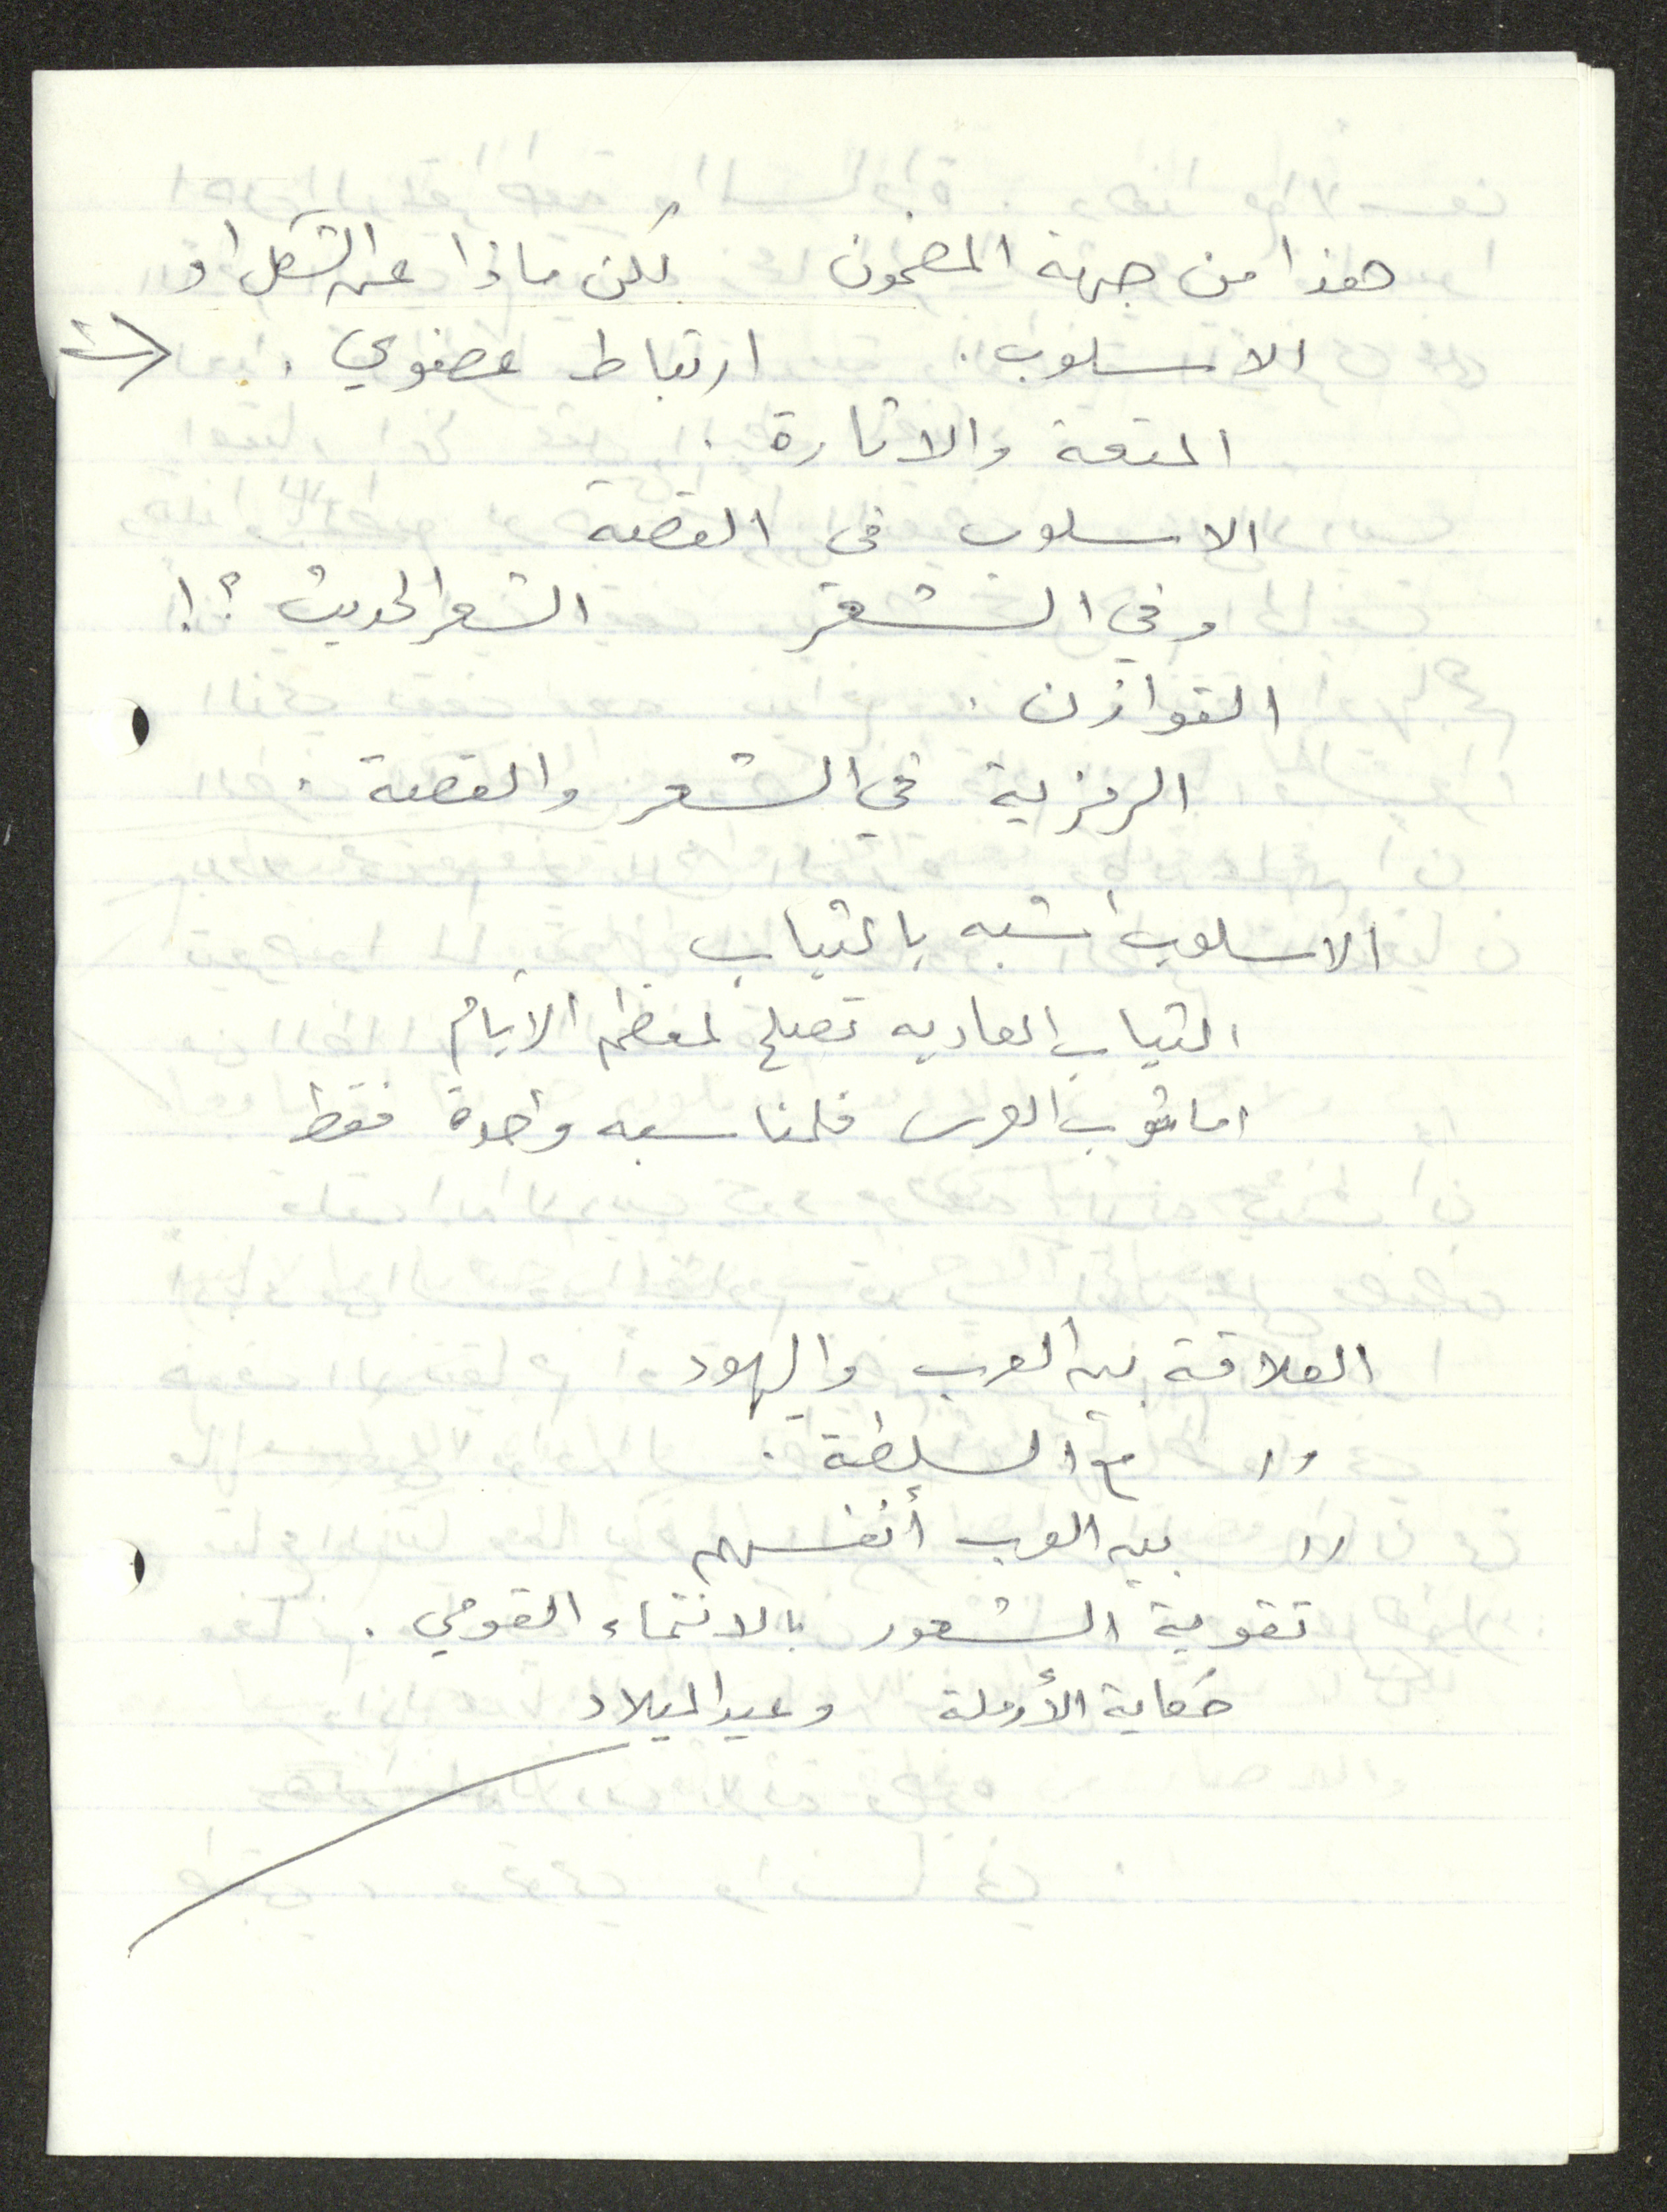 هذا من جهة المضمون لكن ماذا عن الشكل او
الاسلوب. ارتباط عضوي .
المتعة والاثارة .
الاسلوب في القصة
وفي الشعر الشعر الحديث ؟!
التوازن .
الرمزية في الشعر والقصة .
الاسلوب اشبه بالثياب
الثياب العاديه تصلح لمعظم الايام
اما ثوب العرس فلمناسبه واحدة فقط
العلاقة بين العرب واليهود
〃 مع السلطة .
〃 بين العرب أنفسهم
تقوية الشعور بالانتماء القومي .
حكاية الأرملة وعيد الميلاد